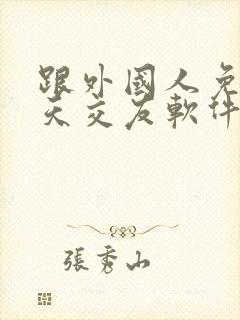 跟外國人免
天交友軟件
張秀山